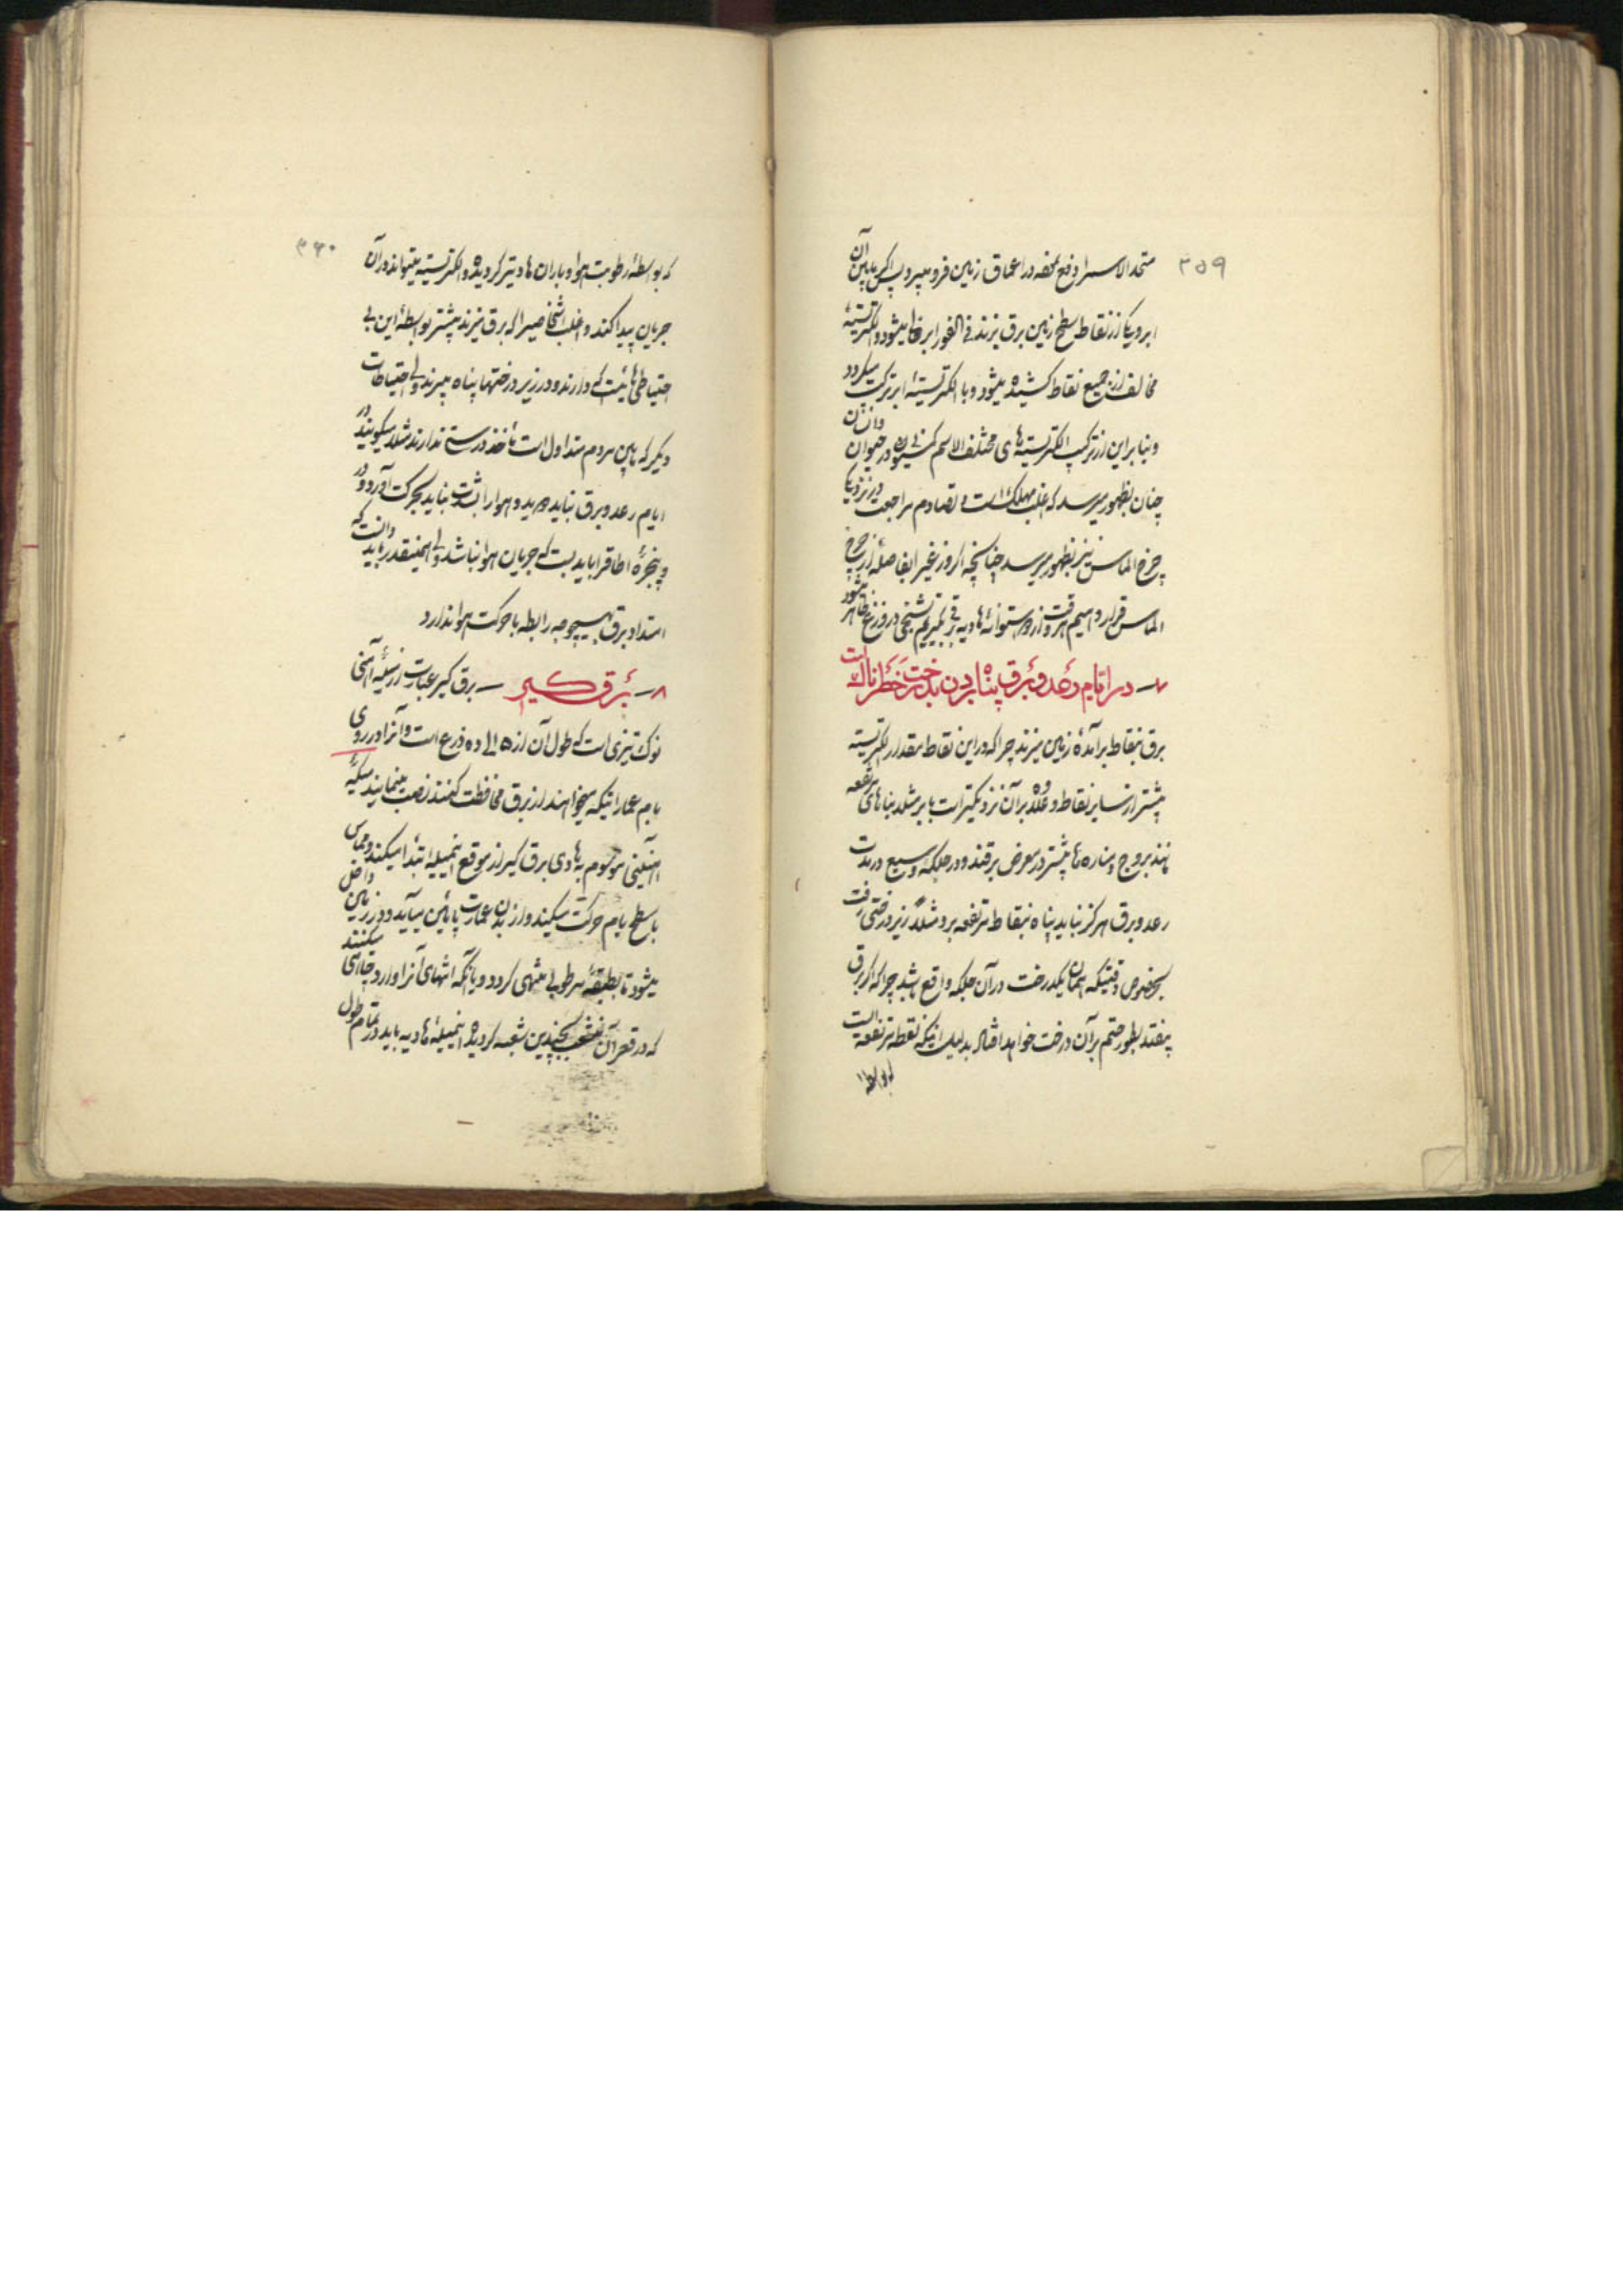 ۳۵۹
متحد الاسم را دفع نموده در اعماق زمین فرو میبرد پس اگر مابین آن
ابر و یکی از نقاط سطح زمین برق بزند فی الفور ابر خالی میشود و الکتریسیتهٔ
مخالف از جمیع نقاط کشیده میشود و با الکتریسیتهٔ ابر ترکیب میگردد
و بنابراین از ترکیب الکتریسیته های مختلف الاسم در حیوان و انسان
چنان بظهور میرسد که اغلب مهلک است و تصادم مراجعت در نزدیکی
چرخ الماس نیز بظهور میرسد چنانچه اگر وزغی را بفاصلهٔ از چرخ
الماس قرار دهیم هر وقت از استوانهٔ هادیه برقی بگیریم تشنجی در وزغ ظاهر میشود
۷ – در ایام رعد و برق پناه بردن بدرخت خطرناک است
برق بنقاط برآمدهٔ زمین میزند چرا که در این نقاط مقدار الکتریسیته
بیشتر از سایر نقاط و علاوه بر آن نزدیکتر است بابر مثلا بناهای مرتفعه
مانند بروج و مناره ها بیشتر در معرض برقند و در جلگهٔ وسیع در مدت
رعد و برق هرگز نباید پناه بنقاط مرتفعه برد مثلاً زیر درختی رفت
بخصوص وقتیکه همان یکدرخت در آن جلگه واقع باشد چرا که اگر برق
بیفتد بطور حتم بر آن درخت خواهد افتاد بدلیل اینکه نقطه مرتفعه ایست
که بواسطهٔ
۳۶۰
که بواسطهٔ رطوبت هوا و باران هادی تر گردیده و الکتریسیته میتواند در آن
جریان پیدا کند و اغلب اشخاصیرا که برق میزند بیشتر بواسطهٔ این بی
احتیاطی هائیست که دارند و در زیر درختها پناه میبرند ولی احتیاطات
دیگر که مابین مردم متداول است مأخذ درستی ندارند مثلا میگویند در
ایام رعد و برق نباید دوید و هوا را بشدت نباید بحرکت آورد و در
و پنجرهٔ اطاقرا باید بست که جریان هوا نباشد ولی همینقدر باید دانست که
امتداد برق بهیچوجه رابطه با حرکت هوا ندارد
۸ – برق گیر – برق گیر عبارت از میلهٔ آهنی
نوک تیزی است که طول آن از ۵ الی ده ذرع است و آنرا در روی
بام عماراتیکه میخواهند از برق محافظت کنند نصب مینمایند میلهٔ
آهنینی موسوم به هادی برق گیر از موقع این میله ابتدا میکند و مماس
با سطح بام حرکت میکند و از بدن عمارت پائین میآید و در زمین داخل
میشود تا بطبقهٔ مرطوبی منتهی گردد و یا آنکه انتهای آنرا وارد چاهی میکنند
که در قعر آن منشعب بچندین شعبه گردیده این میلهٔ هادیه باید در تمام طول